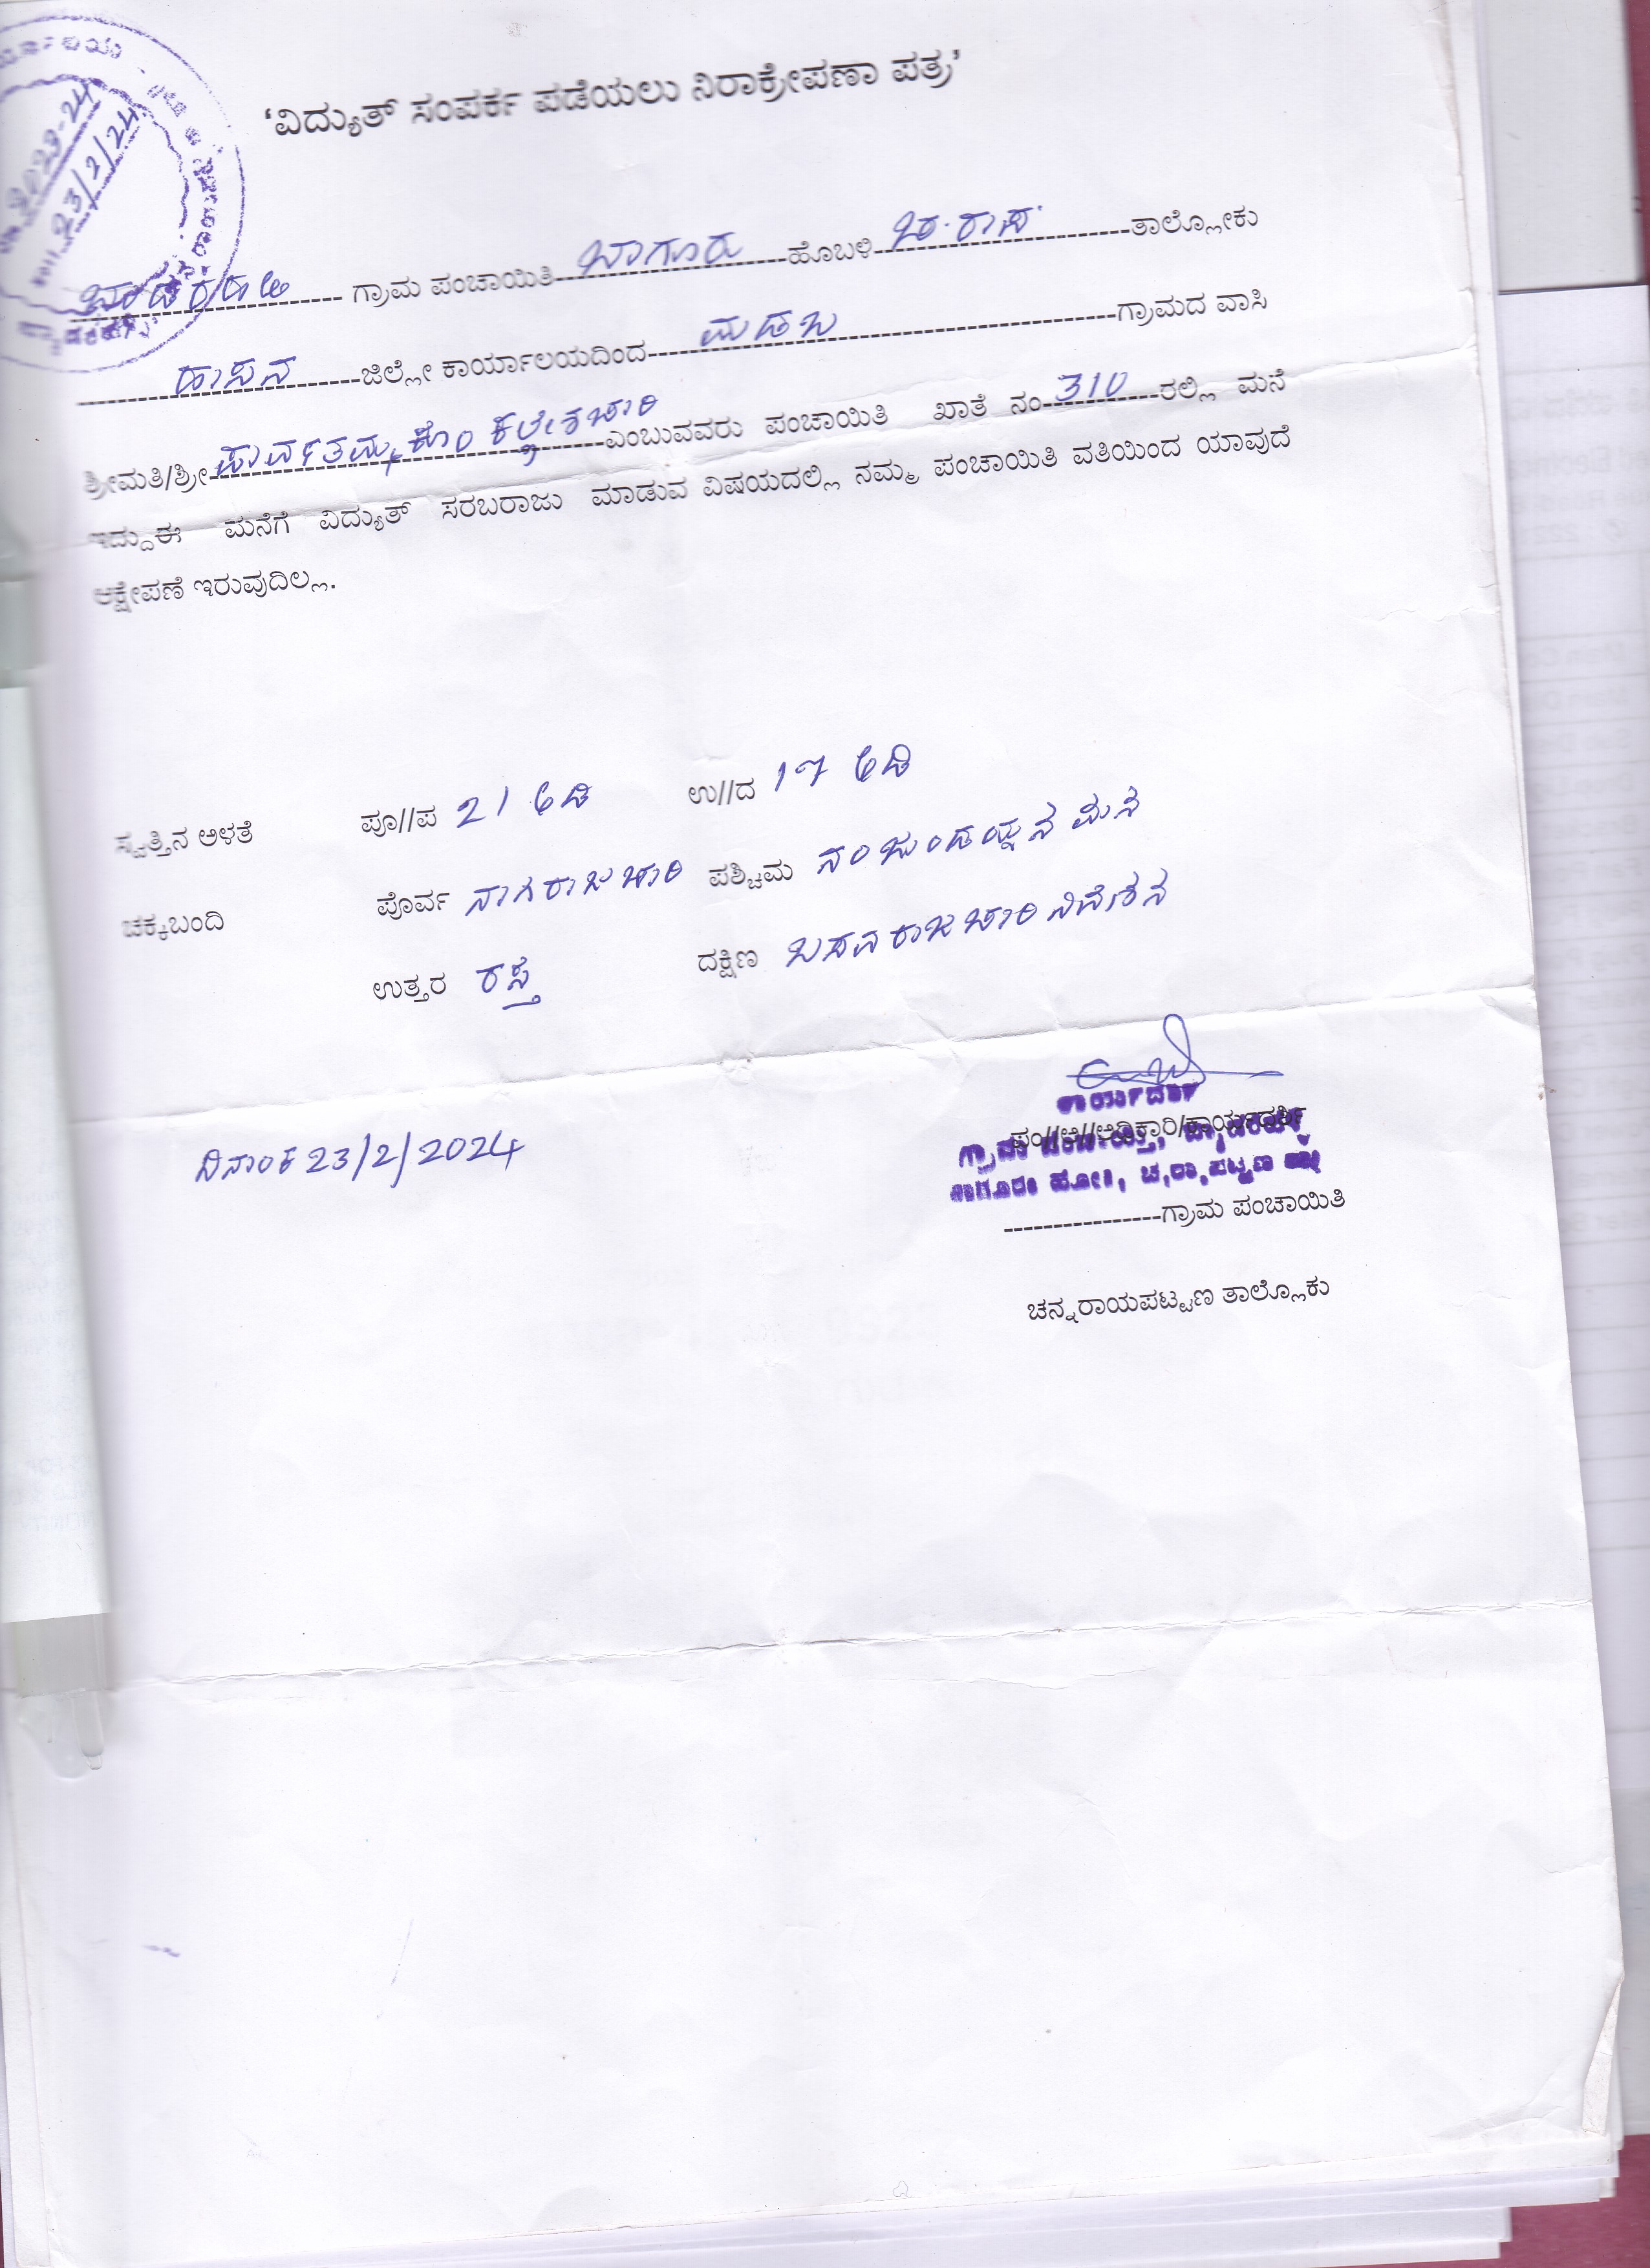 2023-24
23/2/24
‘ವಿದ್ಯುತ್ ಸಂಪರ್ಕ ಪಡೆಯಲು ನಿರಾಕ್ರೇಪಣಾ ಪತ್ರ’
ಗ್ರಾಮ ಪಂಚಾಯಿತಿ ಬಾಗೂರು ಹೊಬಳಿ ಚ.ರಾಪ. ತಾಲ್ಲೋಕು
ಹಾಸನ ಜಿಲ್ಲೇ ಕಾರ್ಯಾಲಯದಿಂದ ಮಡಬ ಗ್ರಾಮದ ವಾಸಿ
ಶ್ರೀಮತಿ/ಶ್ರೀ ಪಾರ್ವತಮ್ಮ ಕೊಂ ಕಲ್ಲೇಶಚಾರಿ ಎಂಬುವವರು ಪಂಚಾಯಿತಿ ಖಾತೆ ನಂ 310 ರಲ್ಲಿ ಮನೆ
ಇದ್ದು ಈ ಮನೆಗೆ ವಿದ್ಯುತ್ ಸರಬರಾಜು ಮಾಡುವ ವಿಷಯದಲ್ಲಿ ನಮ್ಮ ಪಂಚಾಯಿತಿ ವತಿಯಿಂದ ಯಾವುದೆ
ಆಕ್ಷೇಪಣೆ ಇರುವುದಿಲ್ಲ.
ಸ್ವತ್ತಿನ ಅಳತೆ ಪೂ//ಪ 21 ಅಡಿ ಉ//ದ 17 ಅಡಿ
ಚಕ್ಕಬಂದಿ ಪೊರ್ವ ನಾಗರಾಜಚಾರಿ ಪಶ್ಚಿಮ ನಂಜುಂಡಯ್ಯನ ಮನೆ
ಉತ್ತರ ರಸ್ತೆ ದಕ್ಷಿಣ ಬಸವರಾಜಚಾರಿ ನಿವೇಶನ
ದಿನಾಂಕ 23/2/2024
ಕಾರ್ಯದರ್ಶಿ
ಪಂ//ಅ//ಅಧಿಕಾರಿ/ಕಾರ್ಯದರ್ಶಿ
ಗ್ರಾಮ ಪಂಚಾಯ್ತಿ,
ಬಾಗೂರು ಹೋ||, ಚ,ರಾ,ಪಟ್ಟಣ
----------------ಗ್ರಾಮ ಪಂಚಾಯಿತಿ
ಚನ್ನರಾಯಪಟ್ಟಣ ತಾಲ್ಲೊಕು